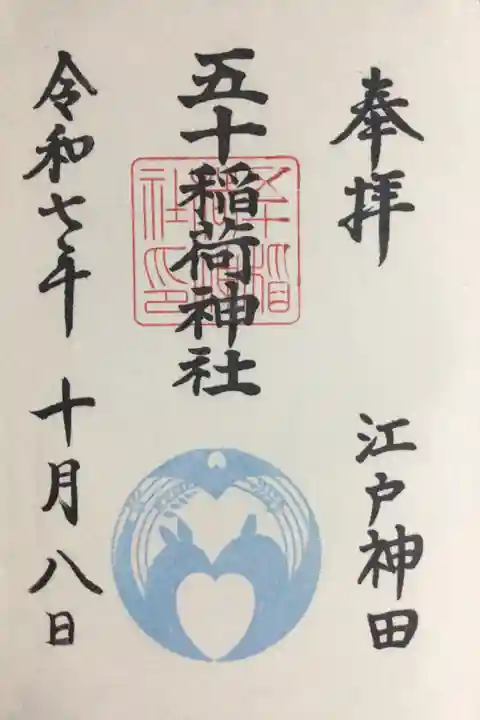 奉拝
江戸神田
五十稲荷神社
令和七年
十月八日